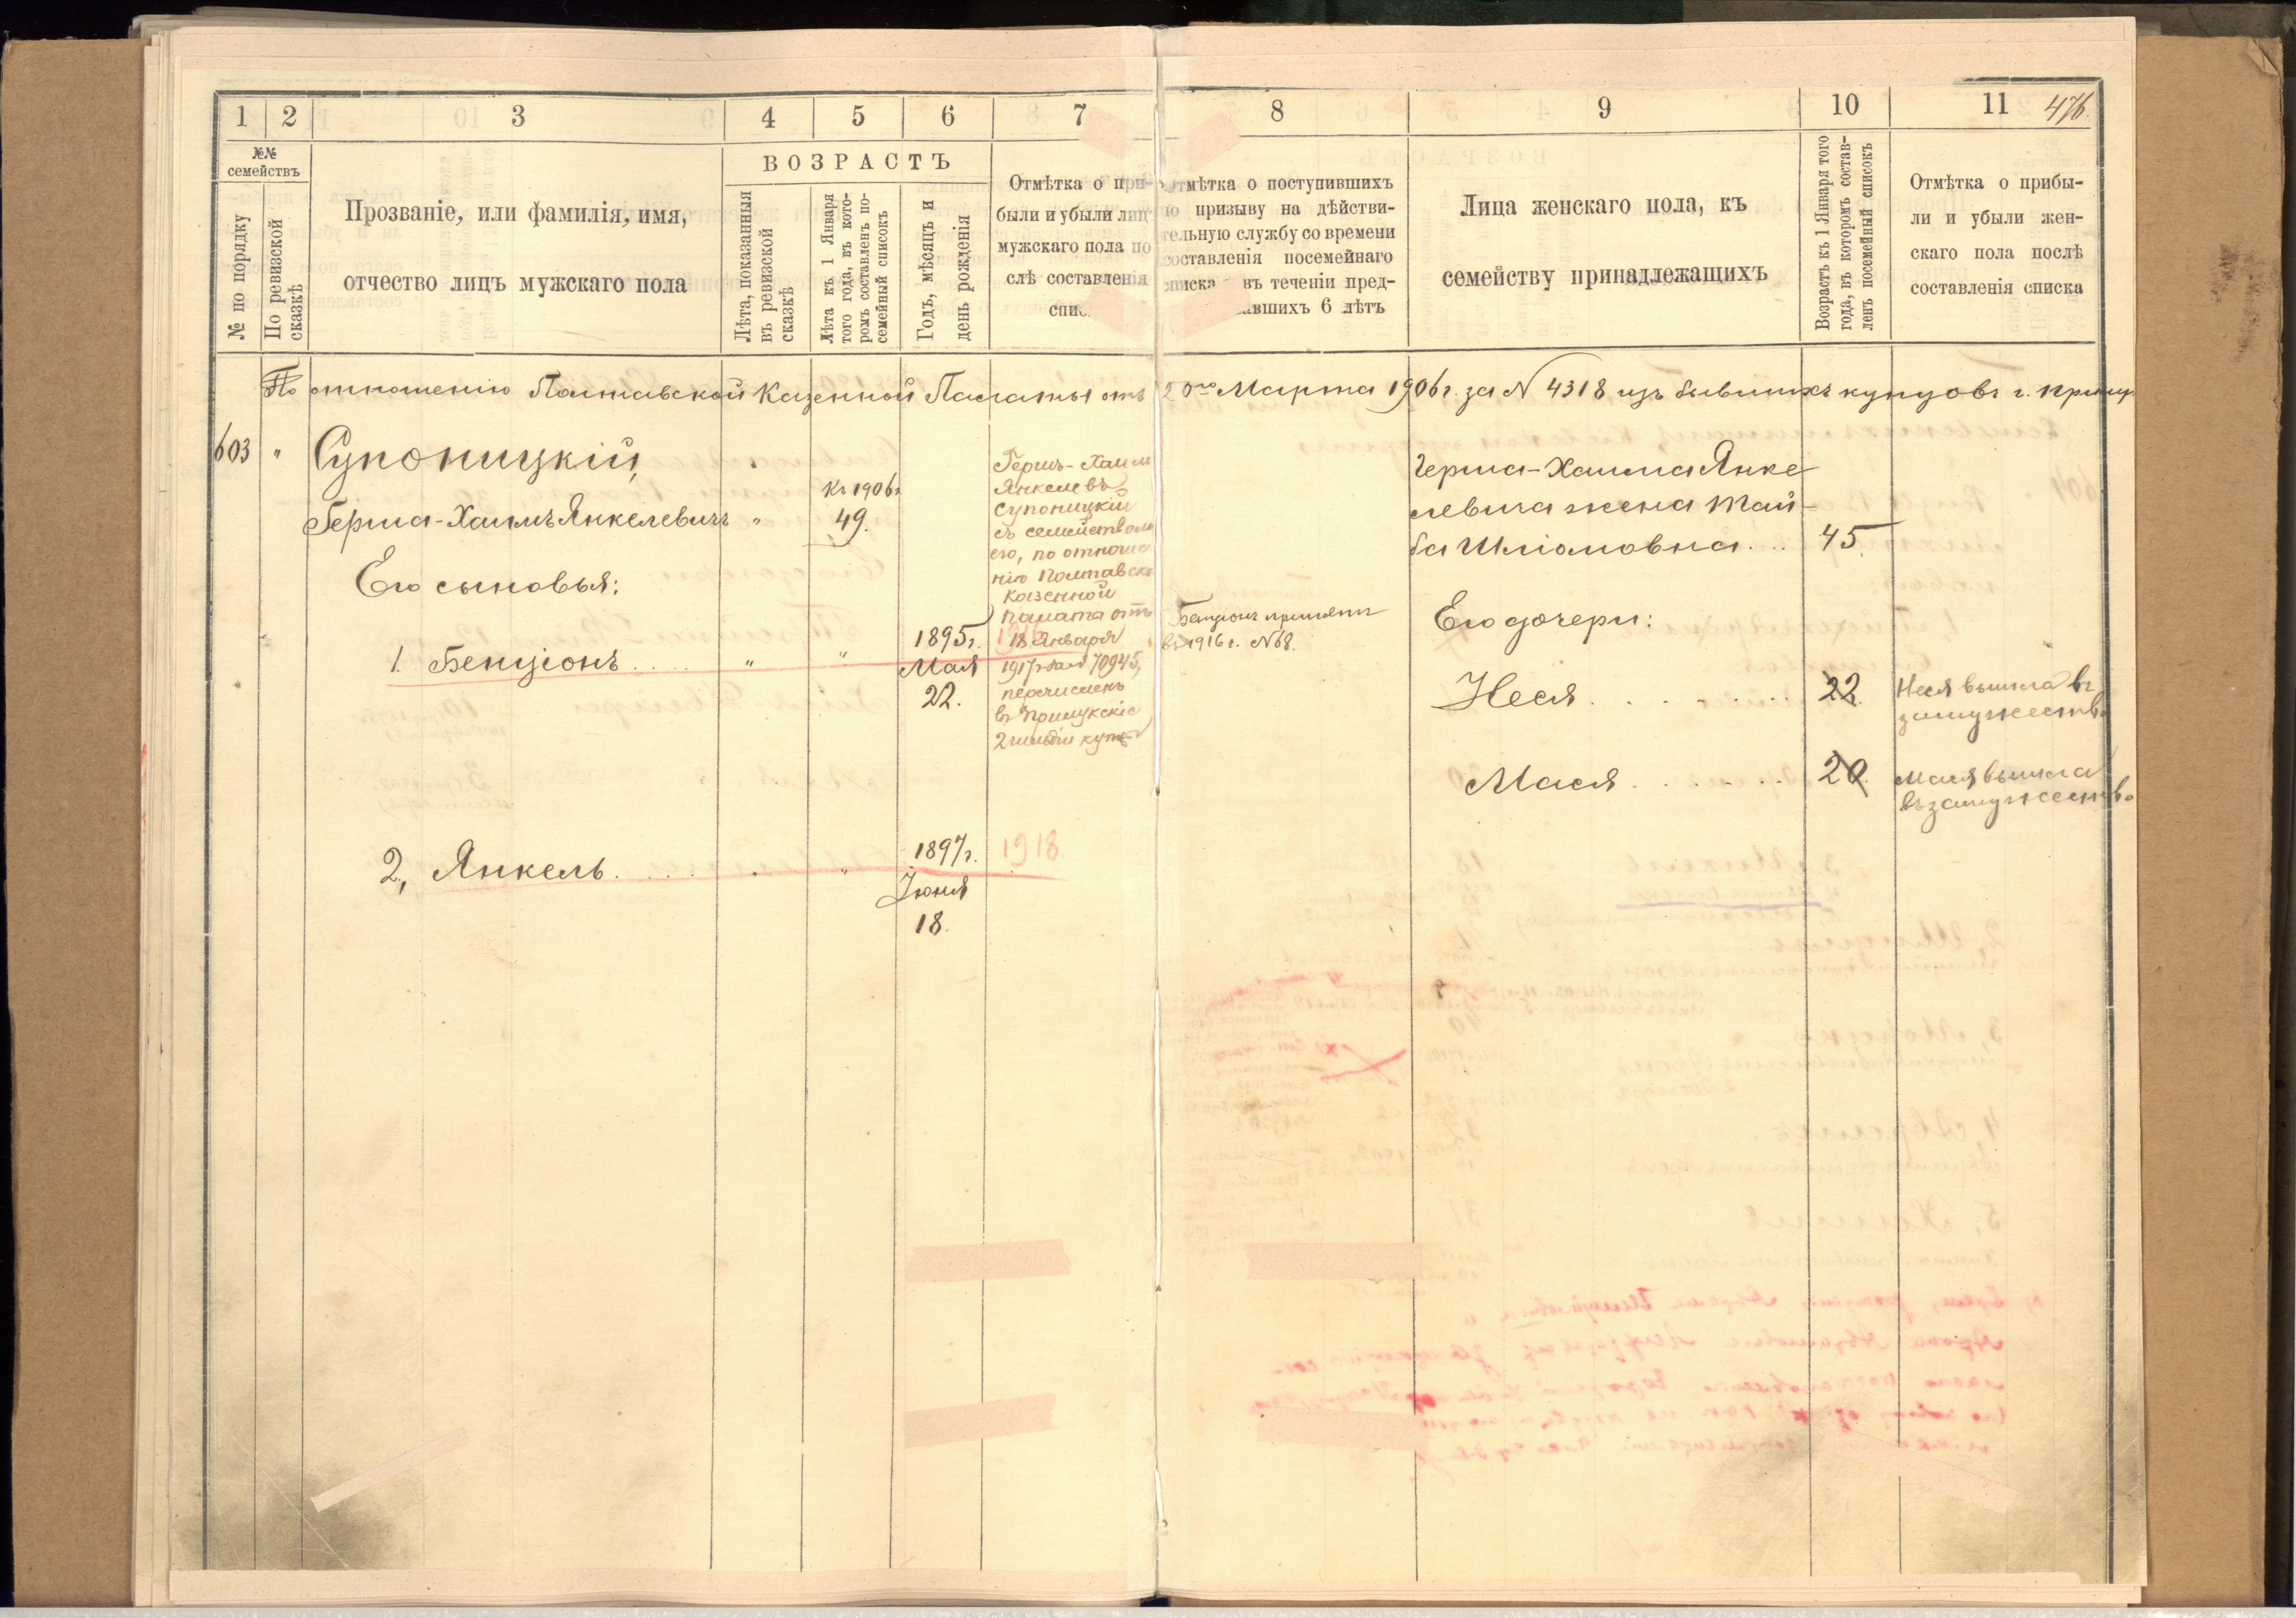 1 2 3 4 5 6 7 8 9 10 11 476.
№№ семействъ
№ по порядку
По ревизской сказкѣ
Прозваніе, или фамилія, имя,
отчество лицъ мужскаго пола
ВОЗРАСТЪ
Лѣта, показанныя
въ ревизской
сказкѣ
Лѣта къ 1 Января
того года, въ кото-
ромъ составленъ по-
семейный списокъ
Годъ, мѣсяцъ и
день рожденія
Отмѣтка о при-
были и убыли лиц
мужскаго пола по
слѣ составленія
спис
Отмѣтка о поступившихъ
по призыву на дѣйстви-
тельную службу со времени
составленія посемейнаго
списка въ теченіи пред-
авшихъ 6 лѣтъ
Лица женскаго пола, къ
семейству принадлежащихъ
Возрастъ къ 1 Января того
года, въ которомъ состав-
ленъ посемейный списокъ
Отмѣтка о прибы-
ли и убыли жен-
скаго пола послѣ
составленія списка
По отношенію Полтавской Казенной Палаты отъ 20го Марта 1906г. за N 4318 изъ бывшихъ купцовъ г. Прилук
603 " Супоницкій,
Герша-Хаимъ Янкелевичъ "
Къ 1906г
49.
Его сыновья:
1. Бенціонъ..... " "
1895г.
Мая
22.
2, Янкель..... "
1897г.
Іюня
18.
1918
Гершъ-Хаим
Янкелевъ
Супоницкій
съ семействомъ
его, по отноше
нію Полтавско
казенной
палата отъ
18 Января
1917г за N 70945,
перечисленъ
въ Прилукскіе
2 гильдіи купц
Бенціонъ принятъ
въ 1916г. N 68.
Герша-Хаима Янке
левича жена Тай-
ба Шліомовна... 45.
Его дочери:
Неся...... 22.
Нося вышла въ
замужество
Мася...... 20.
Мася вышла
въ замужество